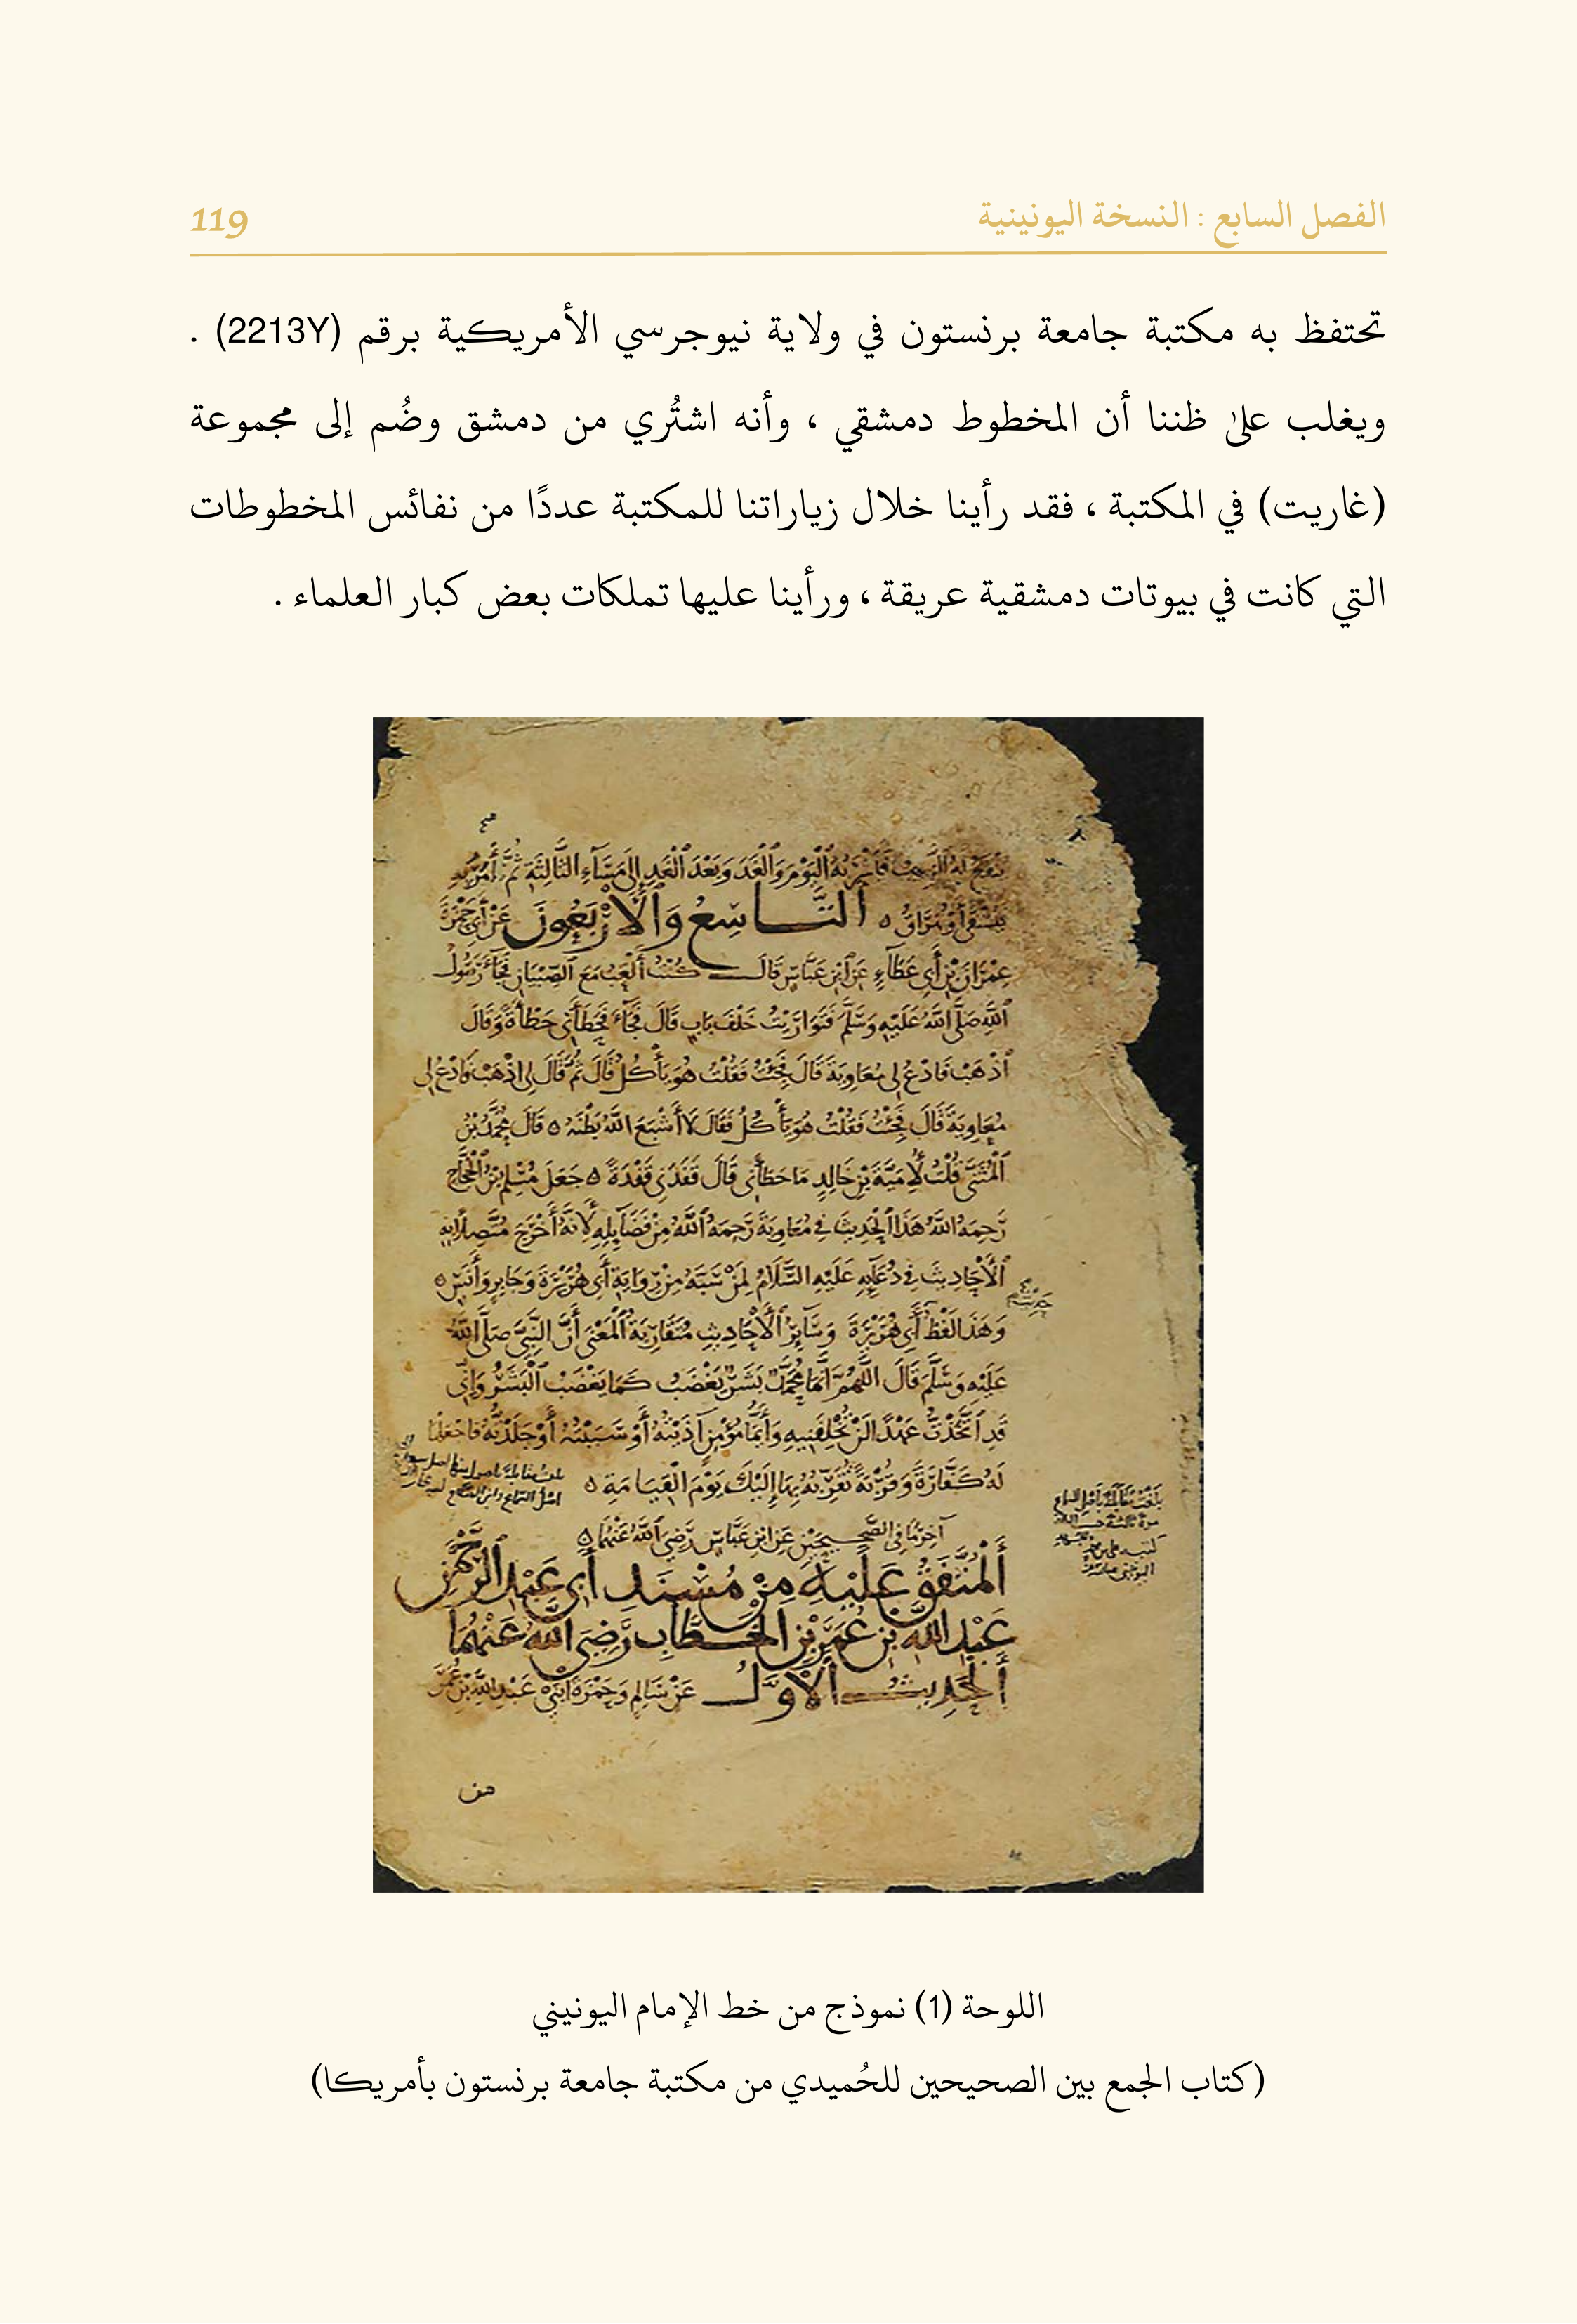 الفصل السابع : النسخة اليونينية
119
تحتفظ به مكتبة جامعة برنستون في ولاية نيوجرسي الأمريكية برقم (2213Y) .
ويغلب على ظننا أن المخطوط دمشقي ، وأنه اشتُري من دمشق وضُم إلى مجموعة
(غاريت) في المكتبة ، فقد رأينا خلال زياراتنا للمكتبة عددًا من نفائس المخطوطات
التي كانت في بيوتات دمشقية عريقة ، ورأينا عليها تملكات بعض كبار العلماء .
فَأَشْرَبُهُ ٱلْيَوْمَ وَٱلْغَدَ وَبَعْدَ ٱلْغَدِ إِلَى مَسَآءِ الثَّالِثَةِ ثُمَّ أَمَرَ بِهِ
ٱلتَّاسِعُ وَٱلْأَرْبَعُونَ عَنْ أَبِي حَمْزَةَ
عِمْرَانَ بْنِ أَبِي عَطَآءٍ عَنِ ٱبْنِ عَبَّاسٍ قَالَ كُنْتُ أَلْعَبُ مَعَ ٱلصِّبْيَانِ فَجَآءَ رَسُولُ
ٱللَّهِ صَلَّى ٱللَّهُ عَلَيْهِ وَسَلَّمَ فَتَوَارَيْتُ خَلْفَ بَابٍ قَالَ فَجَآءَ فَحَطَأَنِي حَطْأَةً وَقَالَ
ٱذْهَبْ فَادْعُ لِي مُعَاوِيَةَ قَالَ فَجِئْتُ فَقُلْتُ هُوَ يَأْكُلُ قَالَ ثُمَّ قَالَ لِي ٱذْهَبْ فَادْعُ لِي
مُعَاوِيَةَ قَالَ فَجِئْتُ فَقُلْتُ هُوَ يَأْكُلُ فَقَالَ لَا أَشْبَعَ اللَّهُ بَطْنَهُ ٥ قَالَ مُحَمَّدُ بْنُ
ٱلْمُثَنَّى قُلْتُ لِأُمَيَّةَ بْنِ خَالِدٍ مَا حَطَأَنِي قَالَ قَفَدَنِي قَفْدَةً ٥ جَعَلَ مُسْلِمُ بْنُ ٱلْحَجَّاجِ
رَحِمَهُ اللَّهُ هَذَا ٱلْحَدِيثَ فِي مُعَاوِيَةَ رَحِمَهُ ٱللَّهُ مِنْ فَضَآئِلِهِ لِأَنَّهُ أَخْرَجَ مُتَّصِلًا بِهِ
ٱلْأَحَادِيثَ فِي دُعَآئِهِ عَلَيْهِ السَّلَامُ لِمَنْ سَبَّهُ مِنْ رِوَايَةِ أَبِي هُرَيْرَةَ وَجَابِرٍ وَأَنَسٍ ٥
وَهَذَا لَفْظُ أَبِي هُرَيْرَةَ وَسَآئِرُ ٱلْأَحَادِيثِ مُتَقَارِبَةُ ٱلْمَعْنَى أَنَّ النَّبِيَّ صَلَّى اللَّهُ
عَلَيْهِ وَسَلَّمَ قَالَ اللَّهُمَّ إِنَّمَا مُحَمَّدٌ بَشَرٌ يَغْضَبُ كَمَا يَغْضَبُ ٱلْبَشَرُ وَإِنِّي
قَدِ ٱتَّخَذْتُ عِنْدَكَ عَهْدًا لَنْ تُخْلِفَنِيهِ وَأَيُّمَا مُؤْمِنٍ آذَيْتُهُ أَوْ سَبَبْتُهُ أَوْ جَلَدْتُهُ فَاجْعَلْهَا
لَهُ كَفَّارَةً وَقُرْبَةً تُقَرِّبُهُ بِهَا إِلَيْكَ يَوْمَ الْقِيَامَةِ ٥
آخِرُ مَا فِي الصَّحِيحَيْنِ عَنِ ابْنِ عَبَّاسٍ رَضِيَ ٱللَّهُ عَنْهُمَا ٥
أَلْمُتَّفَقُ عَلَيْهِ مِنْ مُسْنَدِ أَبِي عَبْدِ ٱلرَّحْمَنِ
عَبْدِ اللَّهِ بْنِ عُمَرَ بْنِ الْخَطَّابِ رَضِيَ اللَّهُ عَنْهُمَا
أَلْحَدِيثُ ٱلْأَوَّلُ عَنْ سَالِمٍ وَحَمْزَةَ ابْنَيْ عَبْدِ اللَّهِ بْنِ عُمَرَ
اللوحة (1) نموذج من خط الإمام اليونيني
(كتاب الجمع بين الصحيحين للحُميدي من مكتبة جامعة برنستون بأمريكا)